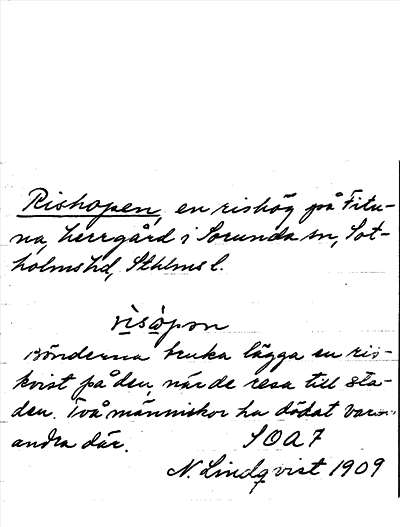 Rishopen, en rishög på Fitu-
na, herrgård i Sorunda sn, Sot-
holmshd, Sthlms l.
rìsòpən
Bönderna bruka lägga en ris-
kvist på den, när de resa till sta-
den. Två människor ha dödat var-
andra där. SOA7
N. Lindqvist 1909